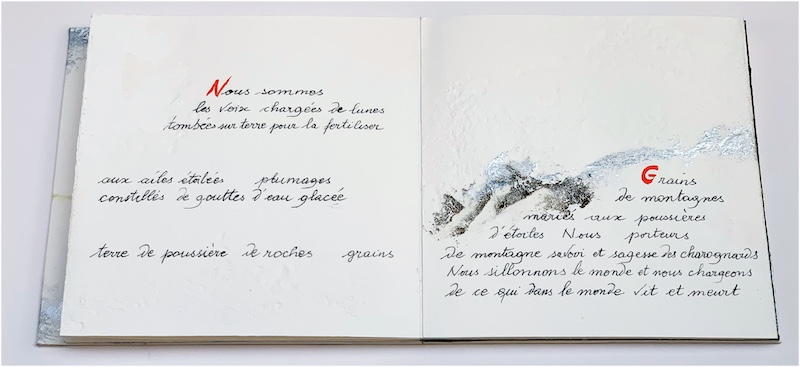 Nous sommes
les voix chargées de lunes
tombées sur terre pour la fertiliser
aux ailes étoilées plumages
constellés de gouttes d'eau glacée
terre de poussière de roches grains
Grains
de montagnes
mariés aux poussières
d'étoiles Nous porteurs
de montagne savoir et sagesse des charognards
Nous sillonnons le monde et nous chargeons
de ce qui dans le monde vit et meurt